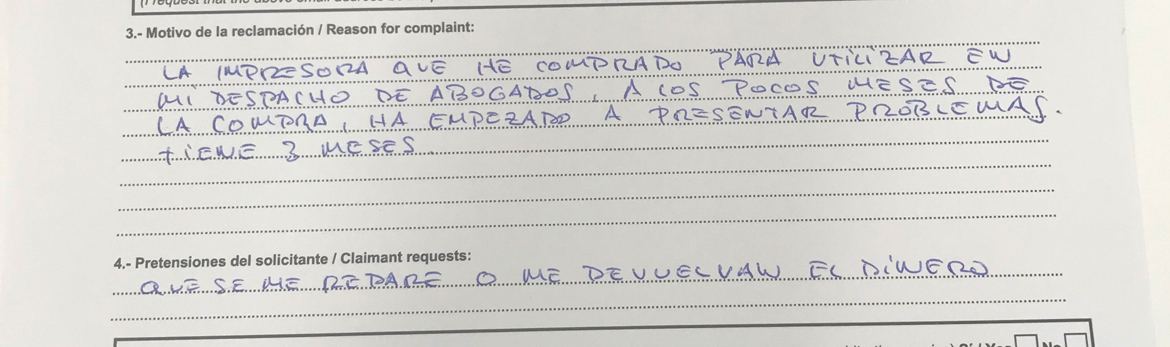 3.- Motivo de la reclamación / Reason for complaint:
LA IMPRESORA QUE HE COMPRADO PARA UTILIZAR EN
MI DESPACHO DE ABOGADOS, A LOS POCOS MESES DE
LA COMPRA, HA EMPEZADO A PRESENTAR PROBLEMAS.
TIENE 3 MESES
4.- Pretensiones del solicitante / Claimant requests:
QUE SE ME REPARE O ME DEVUELVAN EL DINERO